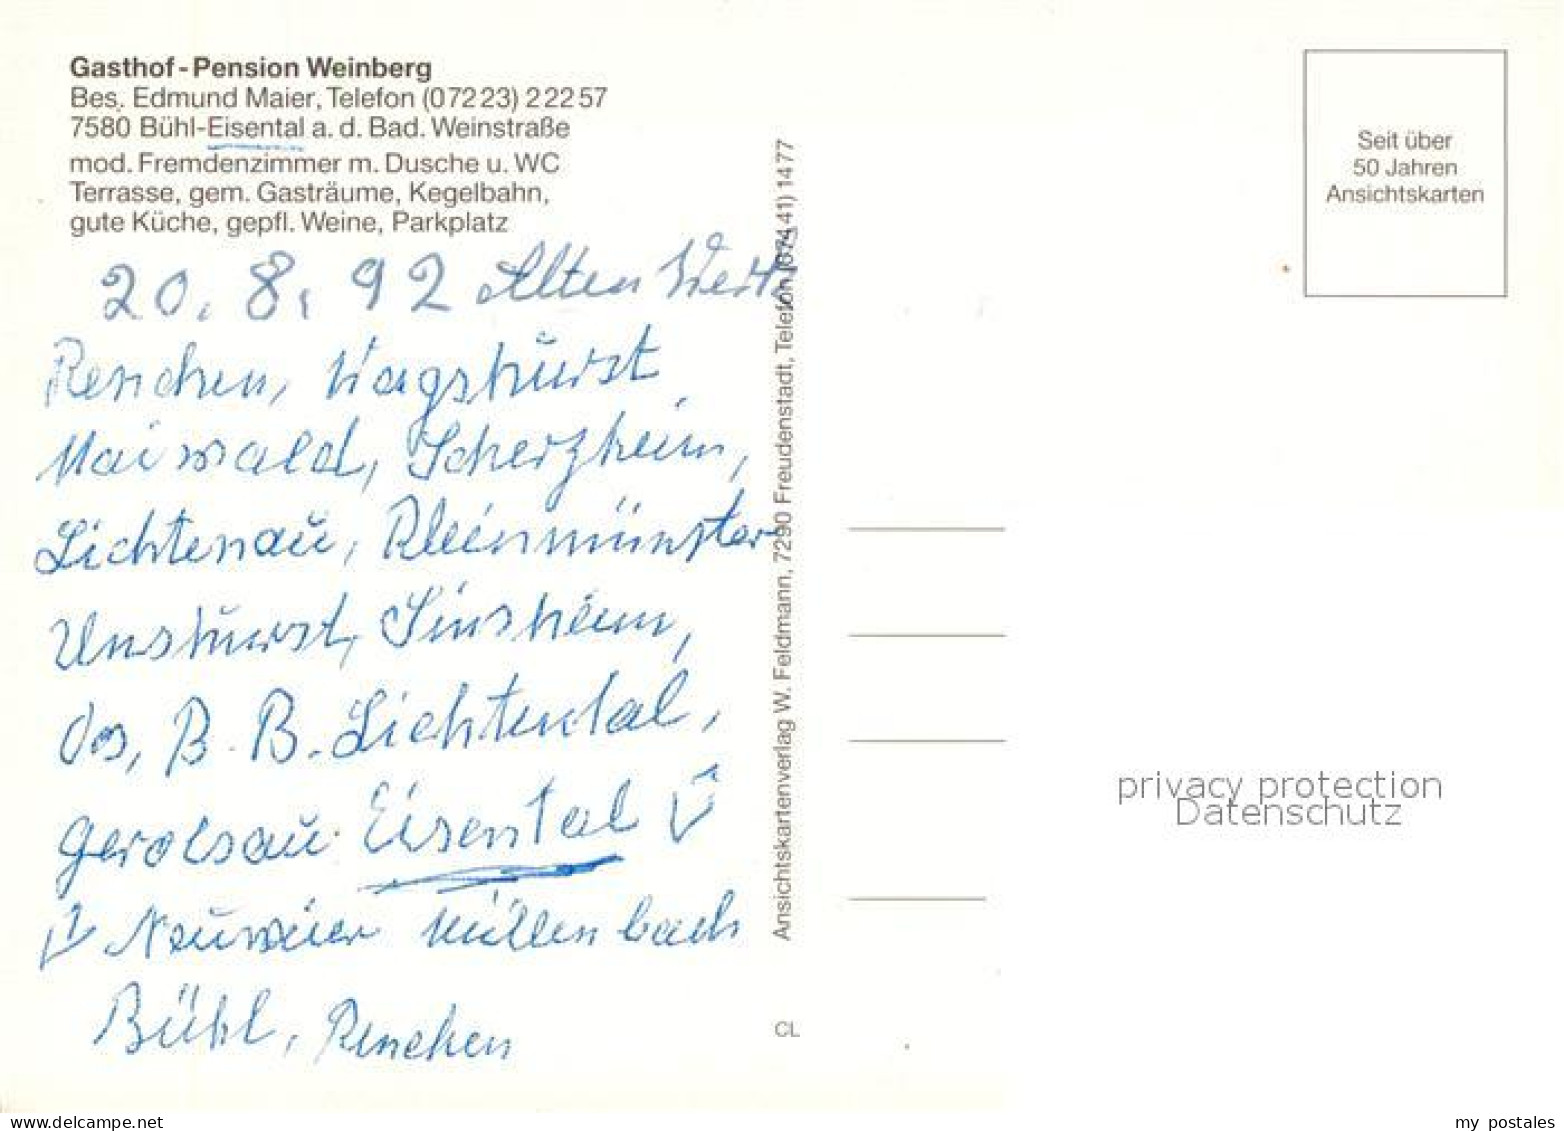 Gasthof-Pension Weinberg
Bes. Edmund Maier, Telefon (07223) 22257
7580 Bühl-Eisental a. d. Bad. Weinstraße
mod. Fremdenzimmer m. Dusche u. WC
Terrasse, gem. Gasträume, Kegelbahn,
gute Küche, gepfl. Weine, Parkplatz
20. 8. 92 Alten
Renchen, Wagshurst
Maiwald, Scherzheim,
Lichtenau, Kleinmünster
Unshurst, Sinsheim,
Oos, B. B. Lichtental,
Gerolsau Eisental
Neuweier Müllenbach
Bühl, Renchen
Ansichtskartenverlag W. Feldmann, 7290 Freudenstadt, Telefon (07441) 1477
CL
Seit über
50 Jahren
Ansichtskarten
privacy protection
Datenschutz
www.delcampe.net
my_postales